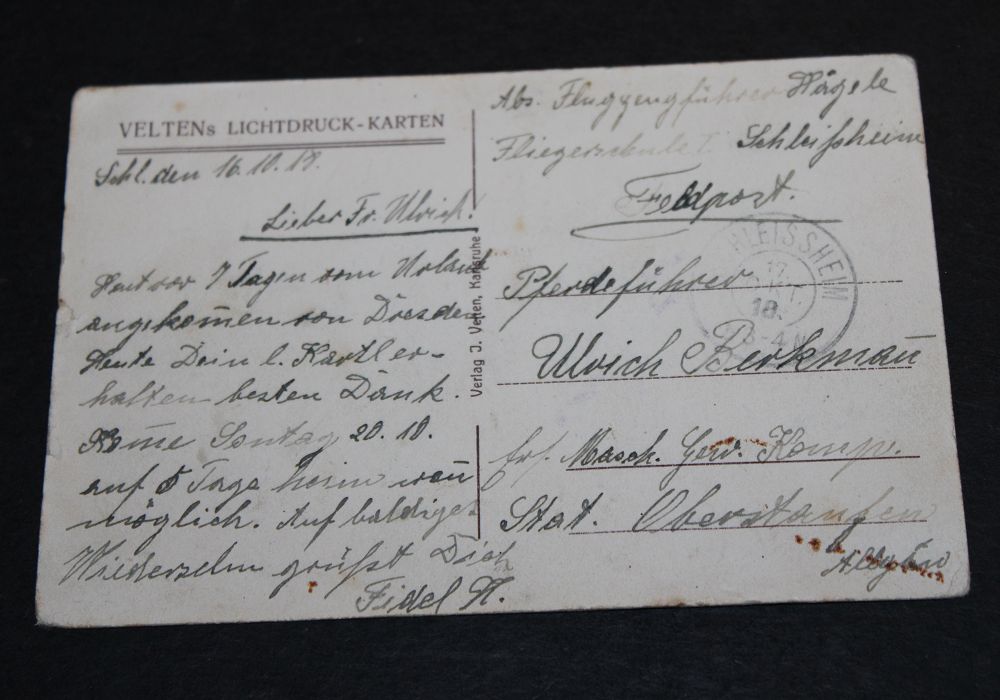 VELTENs LICHTDRUCK-KARTEN
Schl. den 16.10.18.
Lieber Fr. Ulrich.
Heut vor 7 Tagen vom Urlaub
angekom̄en von Dresden
Heute Dein l. Kartl er-
halten besten Dank.
Kom̄e Sontag 20.10.
auf 5 Tage heim wen̄
möglich. Auf baldiges
Wiedersehn grüßt Dich
Fidel H.
Verlag J. Velten, Karlsruhe
Abs. Flugzeugführer Hägele
Fliegerschule I Schleißheim
Feldpost.
SCHLEISSHEIM
17. OKT. 18.
Pferdeführer
Ulrich Berkman̄
Ers. Masch. Gew. Komp.
Stat. Oberstaufen
Allgäu